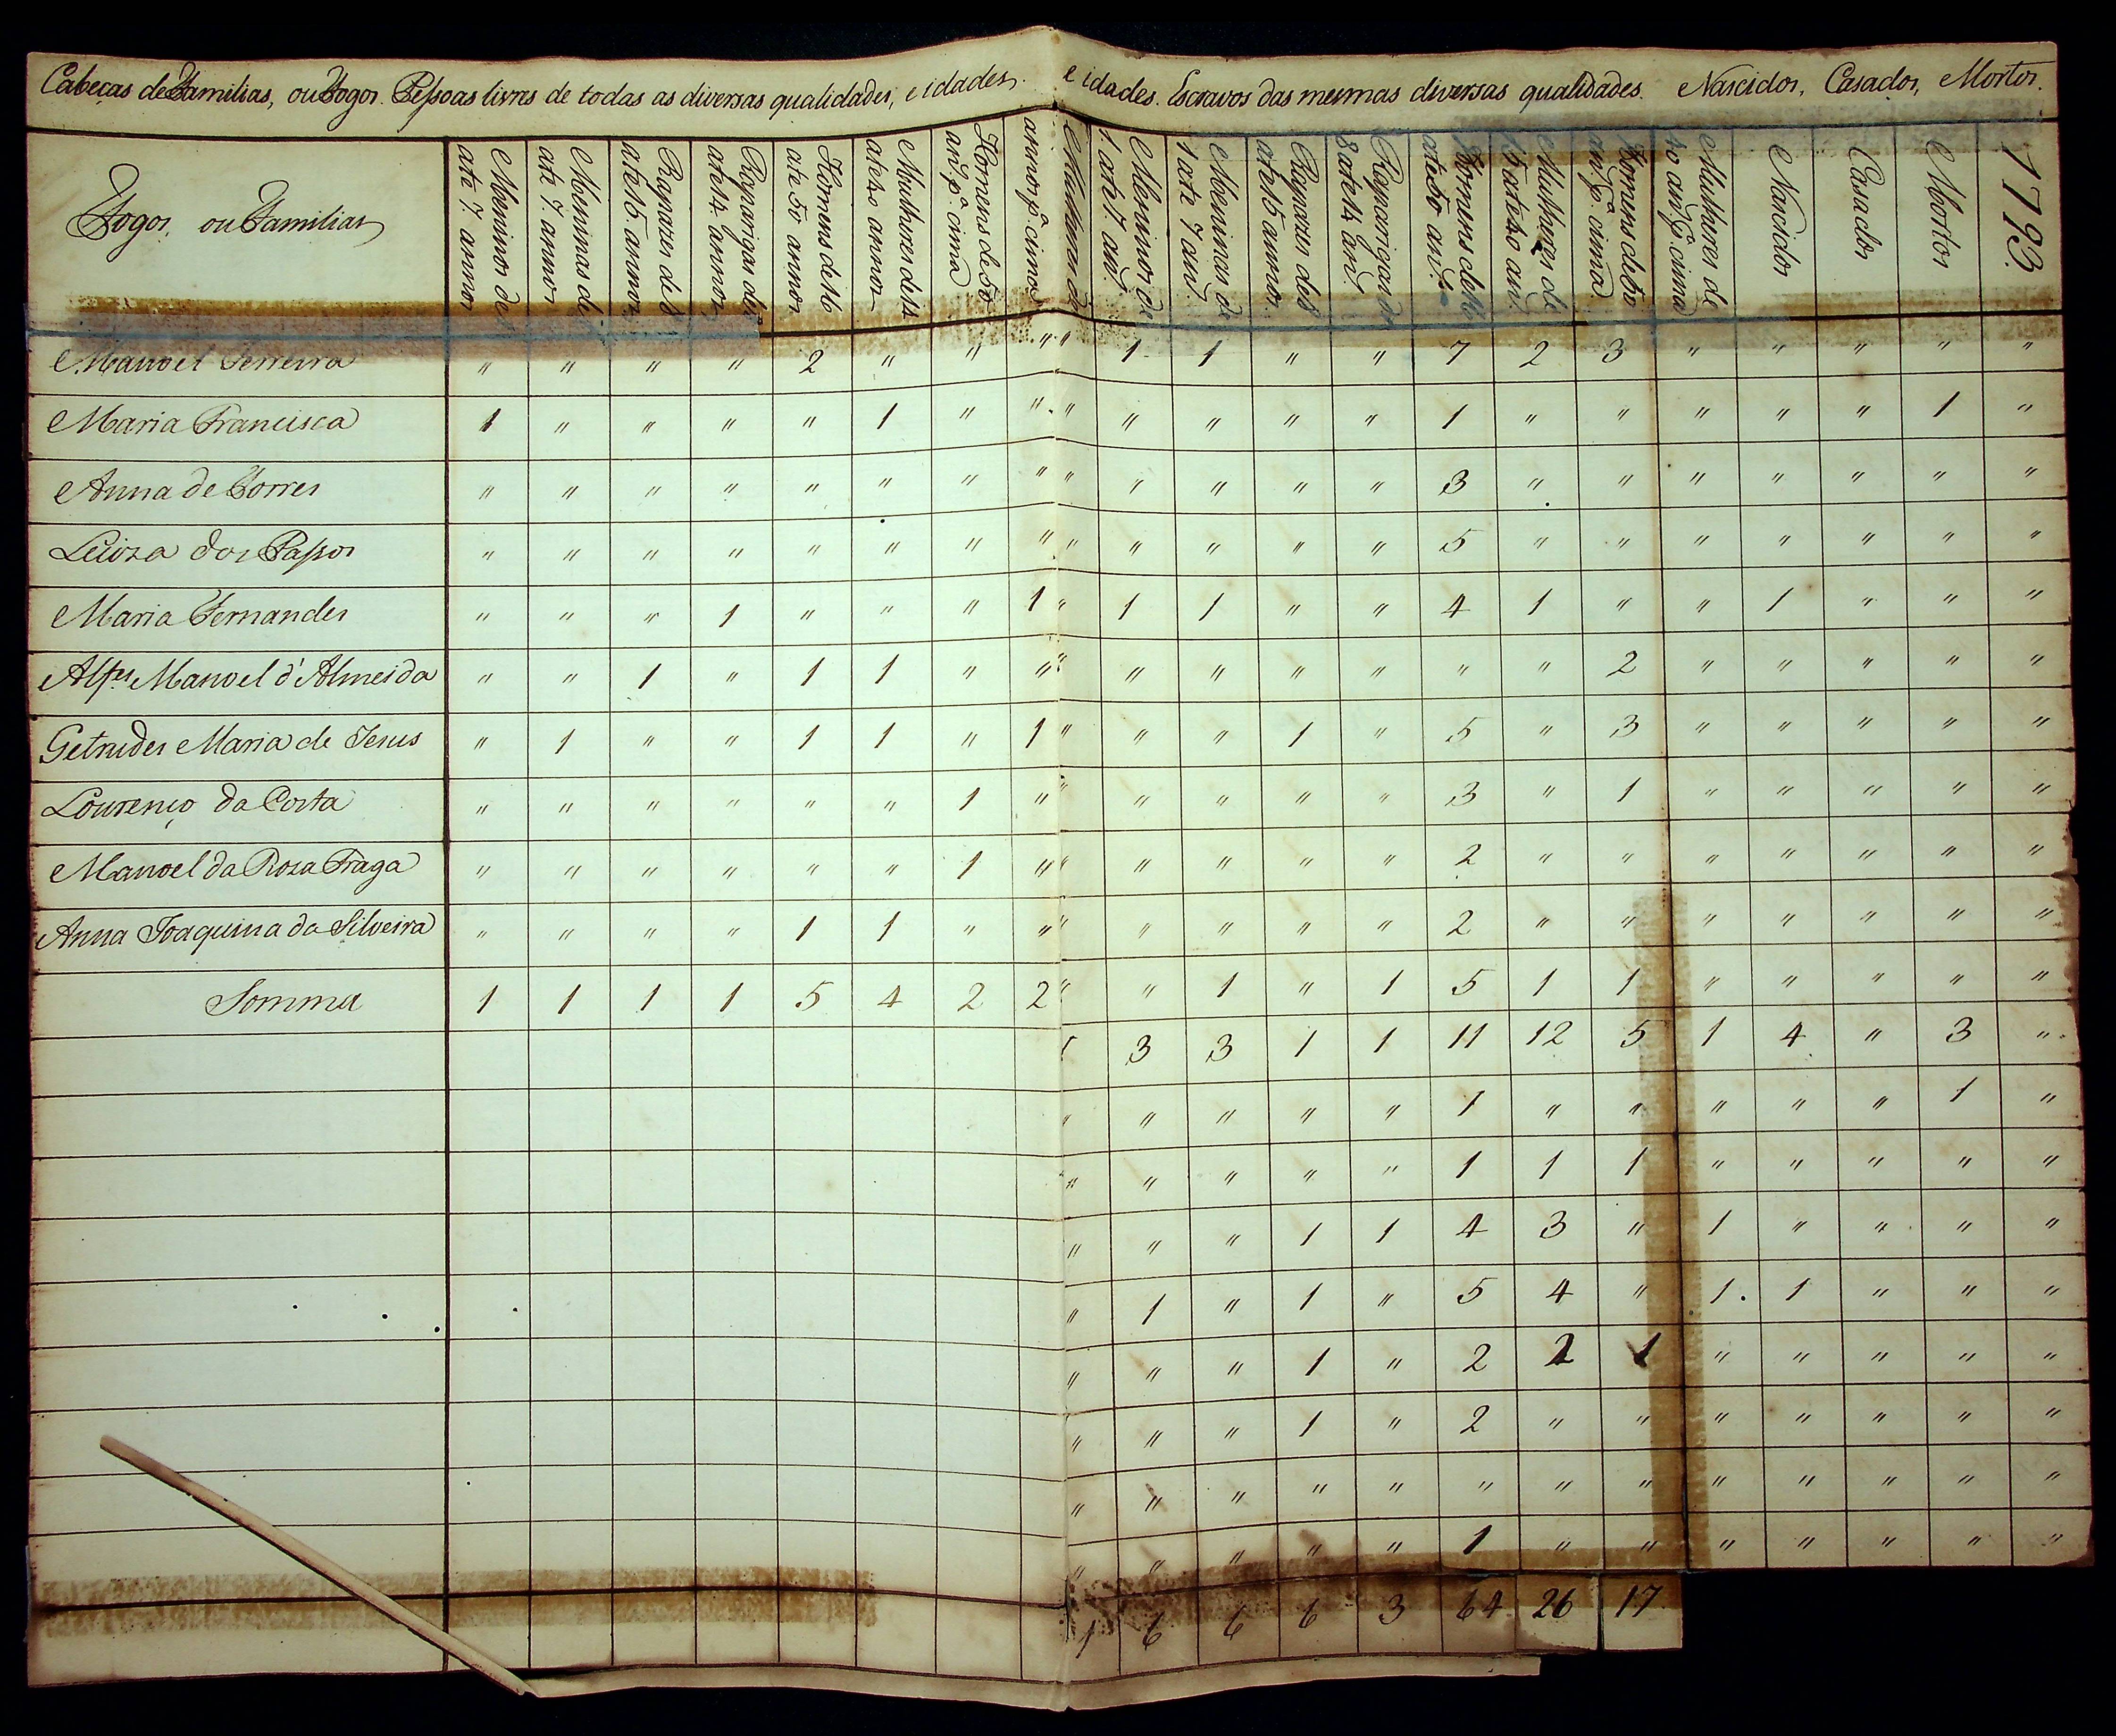 Cabeças de Familias, ou Fogos. Pessoas livres de todas as diversas qualidades, e idades. e idades. Escravos das mesmas diversas qualidades. Nascidos, Casados, Mortos.
Fogos, ou Familias
Meninos de
até 7. annos
Meninas de
até 7. annos
Rapazes de 8
até 15. annos
Raparigas de
até 14. annos
Homens de 16
até 50 annos
Mulheres de 14
até 40 annos
Homens de 50
an.s p.a cima
annos p.a cima
Meninos de
1. até 7. an.s
Meninas de
1 até 7 an.s
Rapazes de 8
até 15 annos
Raparigas de
8 até 14 an.s
Homens de 16
até 50 an.s
Mulheres de
15 até 40 an.s
Homens de 50
an.s p.a cima
Mulheres de
40 an.s p.a cima
Nascidos
Casados
Mortos
1793.
Manoel Ferreira " " " " 2 " " " " 1 1 " " 7 2 3 " " " " "
Maria Francisca 1 " " " " 1 " " " " " " " 1 " " " " " 1 "
Anna de Torres " " " " " " " " " " " " " 3 " " " " " " "
Luiza dos Passos " " " " " " " " " " " " " 5 " " " " " " "
Maria Fernandes " " " 1 " " " 1 " 1 1 " " 4 1 " " 1 " " "
Alf.es Manoel d'Almeida " " 1 " 1 1 " " " " " " " " " 2 " " " " "
Getrudes Maria de Jesus " 1 " " 1 1 " 1 " " " 1 " 5 " 3 " " " " "
Lourenço da Costa " " " " " " 1 " " " " " " 3 " 1 " " " " "
Manoel da Roza Fraga " " " " " " 1 " " " " " " 2 " " " " " " "
Anna Joaquina da Silveira " " " " 1 1 " " " " " " " 2 " " " " " " "
Somma 1 1 1 1 5 4 2 2 " " 1 " 1 5 1 1 " " " " "
3 3 1 1 11 12 5 1 4 " 3 "
" " " " " 1 " " " " " 1 "
" " " " " 1 1 1 " " " " "
" " " 1 1 4 3 " 1 " " " "
" 1 " 1 " 5 4 " 1. 1 " " "
" " " 1 " 2 2 1 " " " " "
" " " 1 " 2 " " " " " " "
" " " " " " " " " " " " "
" " " " " 1 " " " " " " "
1 6 6 6 3 64 26 17